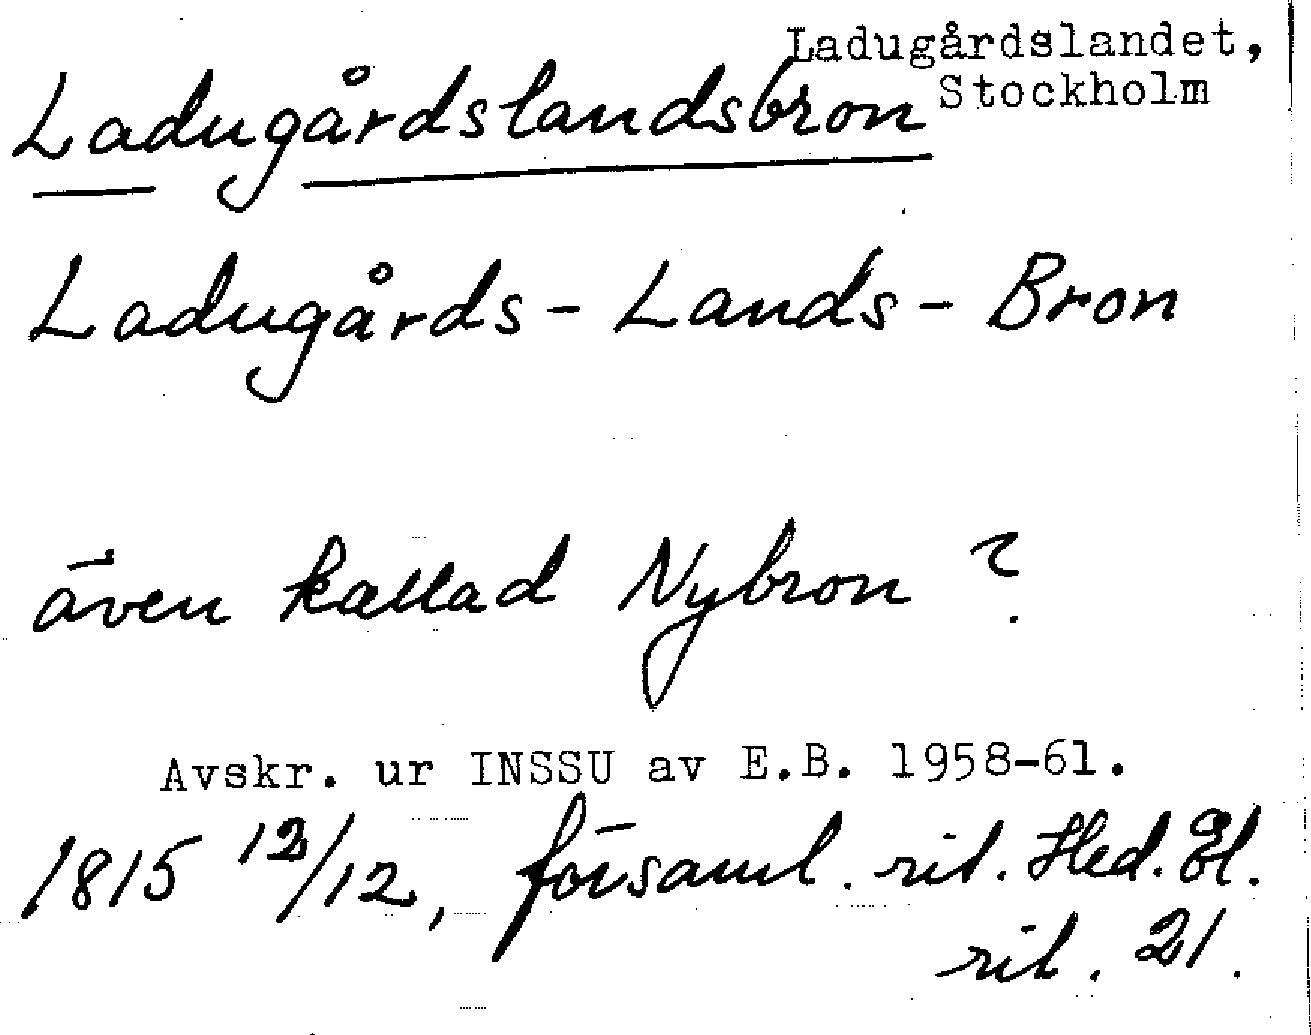 Ladugårdslandet,
Stockholm
Ladugårdslandsbron
Ladugårds-Lands-Bron
även kallad Nybron?
Avskr. ur INSSU av E.B. 1958-61.
1815 12/12, församl. rit. Hed. El.
rit. 21.